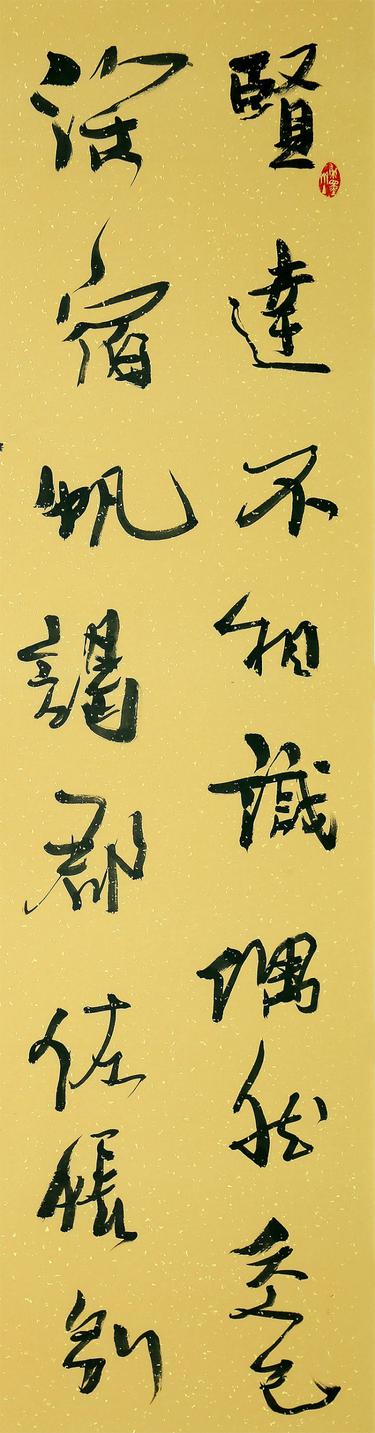 賢達不相識偶然交已
深宿帆謁郡佐悵別